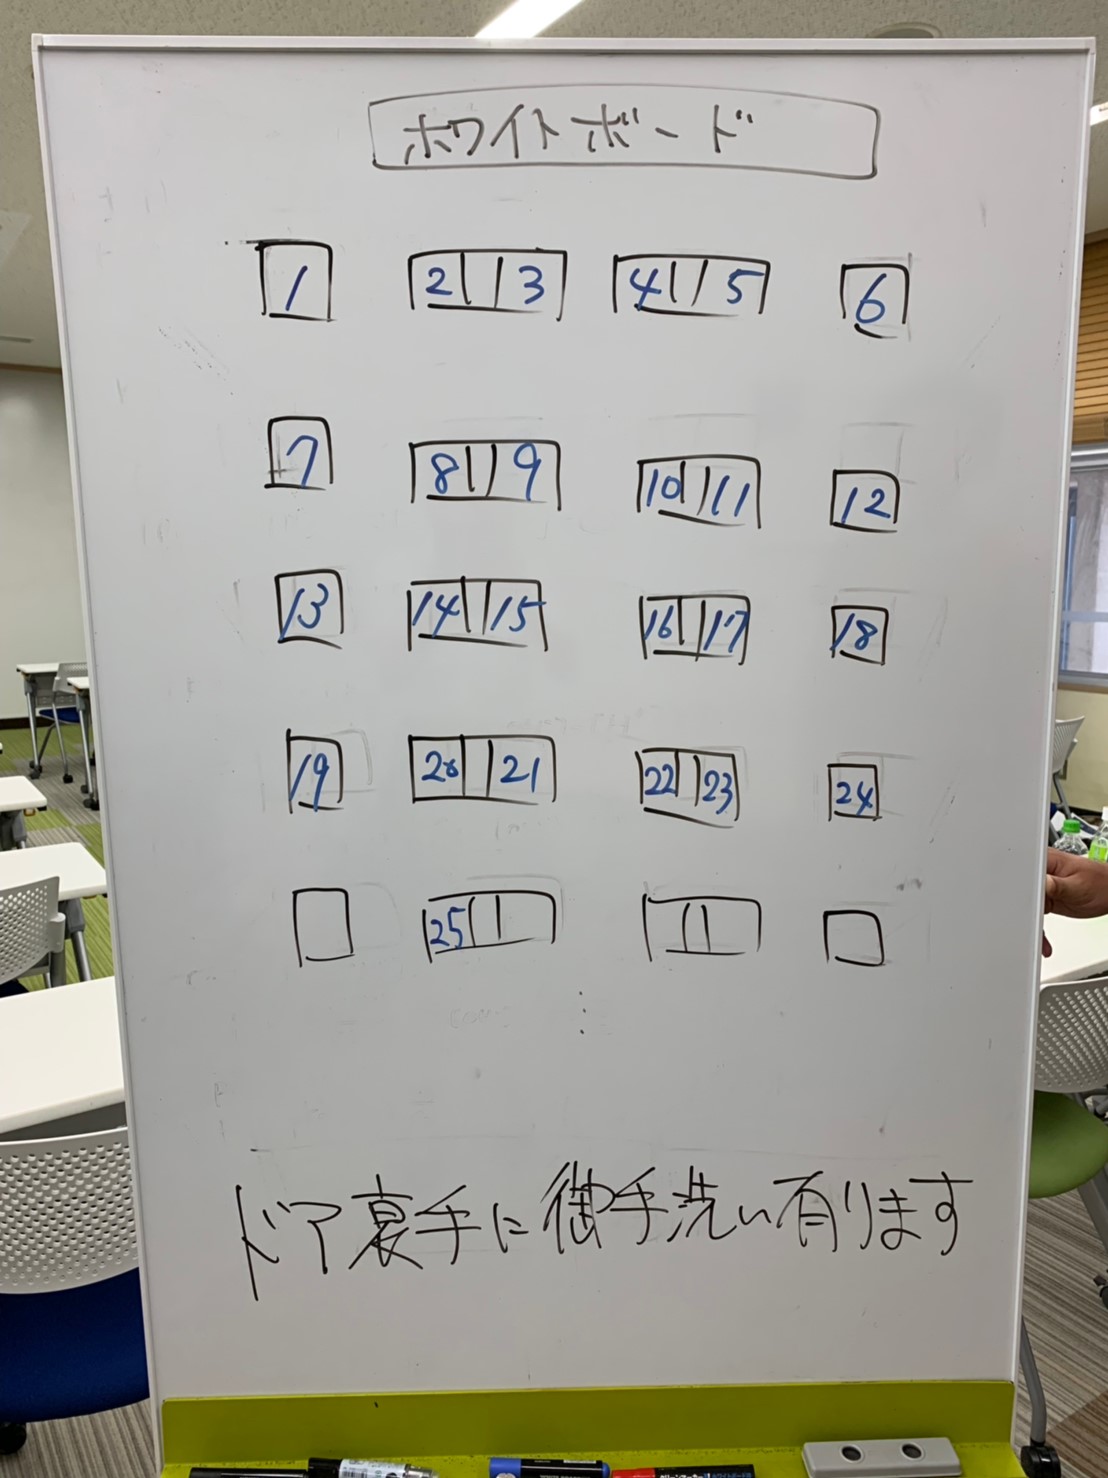 ホワイトボード
1 2 3 4 5 6
7 8 9 10 11 12
13 14 15 16 17 18
19 20 21 22 23 24
25
ドア裏手に御手洗い有ります